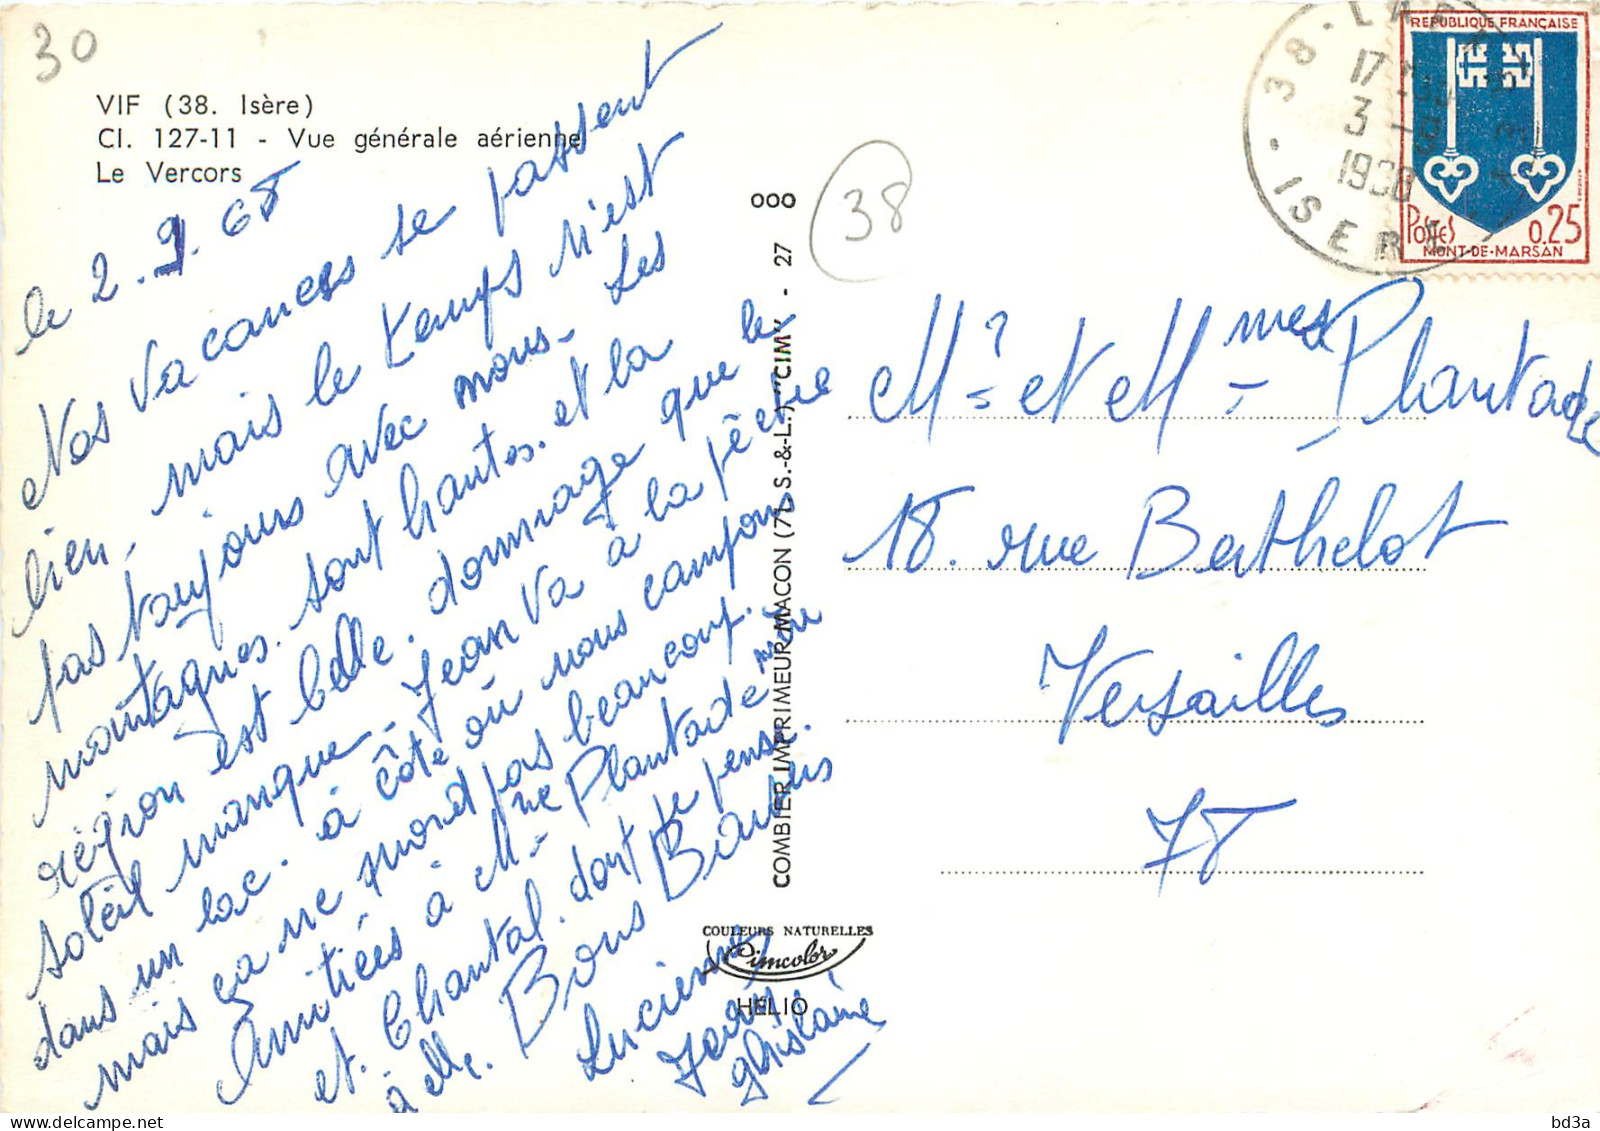 30
VIF (38. Isère)
Cl. 127-11 - Vue générale aérienne
Le Vercors
le 2.9.68
Nos vacances se passent
bien, mais le temps n'est
pas toujours avec nous. Les
montagnes. sont hautes. et la
région est belle. dommage que le
soleil manque. Jean va à la pêche
dans un lac. à côté où nous campons
mais ça ne mord pas beaucoup.
Amitiées à Mme Plantade mère
et. Chantal. dont je pense.
à elle. Bons Baisers
Lucienne
Jean
Ghislaine
ooo
COMBIER IMPRIMEUR MACON (71 S.-&-L.) "CIM" - 27
COULEURS NATURELLES
Cimcolor
HELIO
38
38 - ISERE
17
3 -9
1968
REPUBLIQUE FRANÇAISE
POSTES 0.25
MONT-DE-MARSAN
Mr et Mmes Plantade
18. rue Berthelot
Versailles
78
bd3a